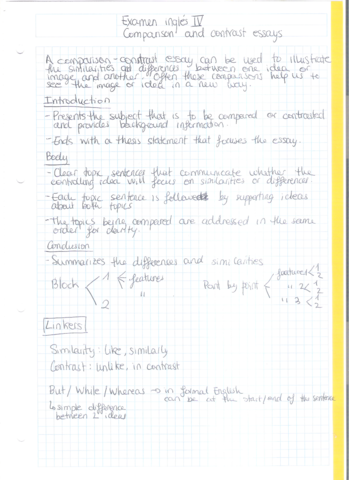 Examen inglés IV
Comparison and contrast essays
A comparison-contrast essay can be used to illustrate
the similarities and differences between one idea or
image and another. Often these comparisons help us to
see the image or idea in a new way.
Introduction
- Presents the subject that is to be compared or contrasted
and provides background information
- Ends with a thesis statement that focuses the essay.
Body
- Clear topic sentences that communicate whether the
controlling idea will focus on similarities or differences
- Each topic sentence is followed by supporting ideas
about both topics
- The topics being compared are addressed in the same
order for clarity.
Conclusion
- Summarizes the differences and similarities
Block < 1 < features
"
2
Point by point < features < 1 2
" 2 < 1 2
" 3 < 1 2
Linkers
Similarity: like, similarly
Contrast: unlike, in contrast
But / While / Whereas → in formal English
can be at the start/end of the sentence
↳ simple difference
between 2 ideas